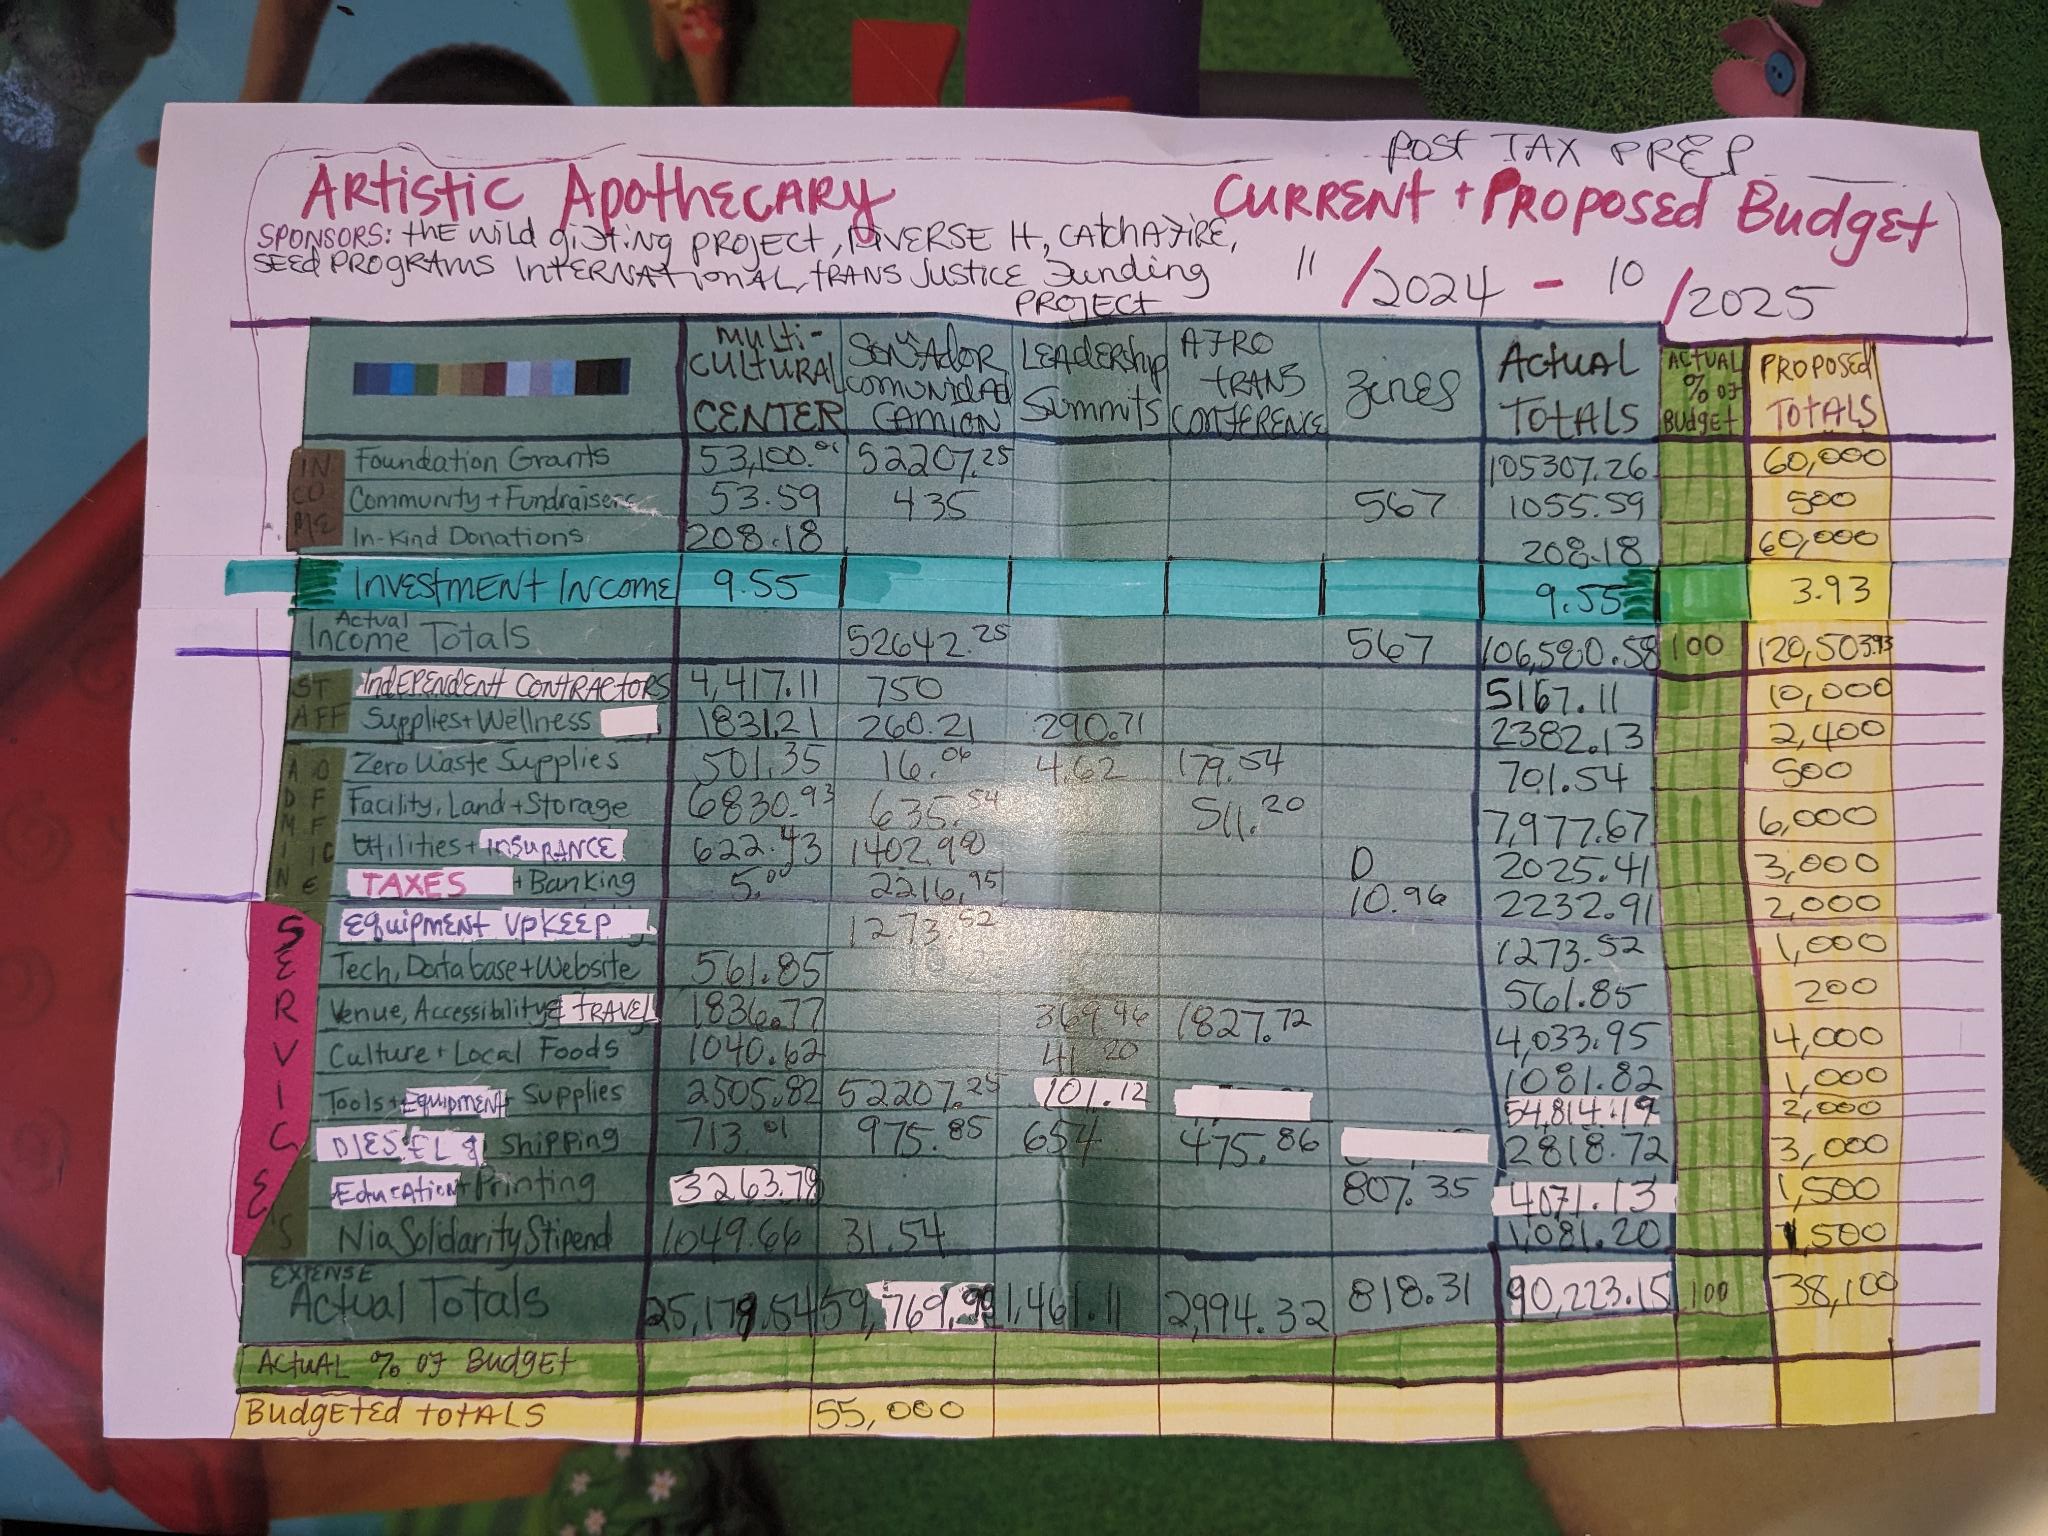 POST TAX PREP
ARTISTIC APOTHECARY CURRENT + PROPOSED BUDGET
SPONSORS: THE WILD GIFTING PROJECT, DIVERSE IT, CATCHAFIRE,
SEED PROGRAMS INTERNATIONAL, TRANS JUSTICE FUNDING PROJECT
11/2024 - 10/2025
MULTI-CULTURAL CENTER SOÑADOR COMUNIDAD CAMION LEADERSHIP SUMMITS AFRO TRANS CONFERENCE ZINES ACTUAL TOTALS ACTUAL % OF BUDGET PROPOSED TOTALS
INCOME
Foundation Grants 53,100.01 52207.25 105307.26 60,000
Community + Fundraisers 53.59 435 567 1055.59 500
In-Kind Donations 208.18 208.18 60,000
INVESTMENT INCOME 9.55 9.55 3.93
Actual Income Totals 52642.25 567 106,580.58 100 120,503.93
STAFF
INDEPENDENT CONTRACTORS 4,417.11 750 5167.11 10,000
Supplies + Wellness 1831.21 260.21 290.71 2382.13 2,400
ADMIN OFFICE
Zero Waste Supplies 501.35 16.06 4.62 179.54 701.54 500
Facility, Land + Storage 6830.93 635.54 511.20 7,977.67 6,000
Utilities + INSURANCE 622.43 1402.98 0 2025.41 3,000
TAXES + Banking 5.00 2216.95 10.96 2232.91 2,000
SERVICES
EQUIPMENT UPKEEP 1273.52 1273.52 1,000
Tech, Database + Website 561.85 561.85 200
Venue, Accessiblity & TRAVEL 1836.77 369.46 1827.72 4,033.95 4,000
Culture + Local Foods 1040.62 41.20 1081.82 1,000
Tools + EQUIPMENT Supplies 2505.82 52207.25 101.12 54,814.19 2,000
DIESEL & Shipping 713.01 975.85 654 475.86 2818.72 3,000
EDUCATION + Printing 3263.78 807.35 4071.13 1,500
Nia Solidarity Stipend 1049.66 31.54 1,081.20 1,500
EXPENSE Actual Totals 25,179.54 59,769.90 1,461.11 2,994.32 818.31 90,223.15 100 38,100
ACTUAL % OF BUDGET
BUDGETED TOTALS 55,000